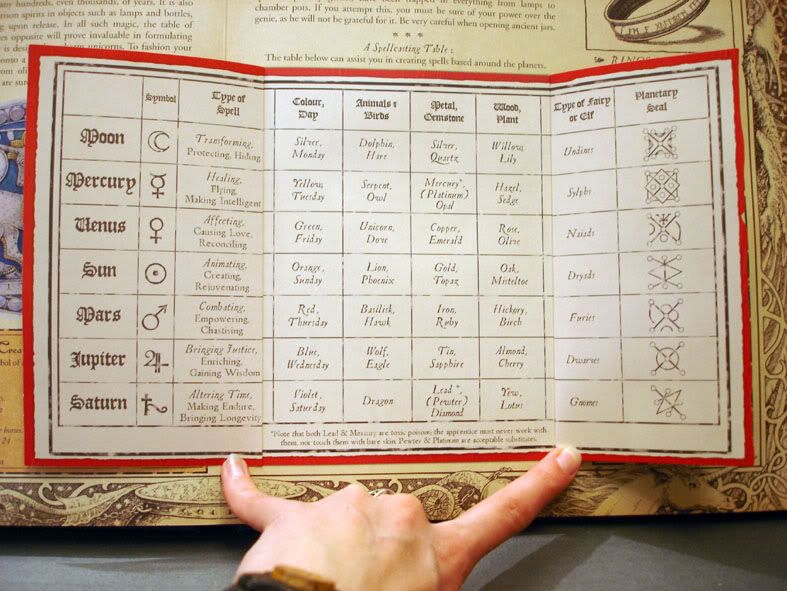 any hundreds, even thousands, of years. It is also
rison spirits in objects such as lamps and bottles,
upon release. In all such magic, the table of
es opposite will prove invaluable in formulating
unicorns. To fashion your
in everything from lamps to
chamber pots. If you attempt this, you must be sure of your power over the
genie, as he will not be grateful for it. Be very careful when opening ancient jars.
* * *
A Spellcasting Table:
The table below can assist you in creating spells based around the planets.
Symbol
Type of Spell
Colour, Day
Animals & Birds
Metal, Gemstone
Wood, Plant
Type of Fairy or Elf
Planetary Seal
Moon
Transforming, Protecting, Hiding
Silver, Monday
Dolphin, Hare
Silver, Quartz
Willow, Lily
Undines
Mercury
Healing, Flying, Making Intelligent
Yellow, Tuesday
Serpent, Owl
Mercury*, (Platinum) Opal
Hazel, Sedge
Sylphs
Venus
Affecting, Causing Love, Reconciling
Green, Friday
Unicorn, Dove
Copper, Emerald
Rose, Olive
Naiads
Sun
Animating, Creating, Rejuvenating
Orange, Sunday
Lion, Phoenix
Gold, Topaz
Oak, Mistletoe
Dryads
Mars
Combating, Empowering, Chastising
Red, Thursday
Basilisk, Hawk
Iron, Ruby
Hickory, Birch
Furies
Jupiter
Bringing Justice, Enriching, Gaining Wisdom
Blue, Wednesday
Wolf, Eagle
Tin, Sapphire
Almond, Cherry
Dwarves
Saturn
Altering Time, Making Endure, Bringing Longevity
Violet, Saturday
Dragon
Lead*, (Pewter) Diamond
Yew, Lotus
Gnomes
*Note that both Lead & Mercury are toxic poisons; the apprentice must never work with
them, nor touch them with bare skin. Pewter & Platinum are acceptable substitutes.